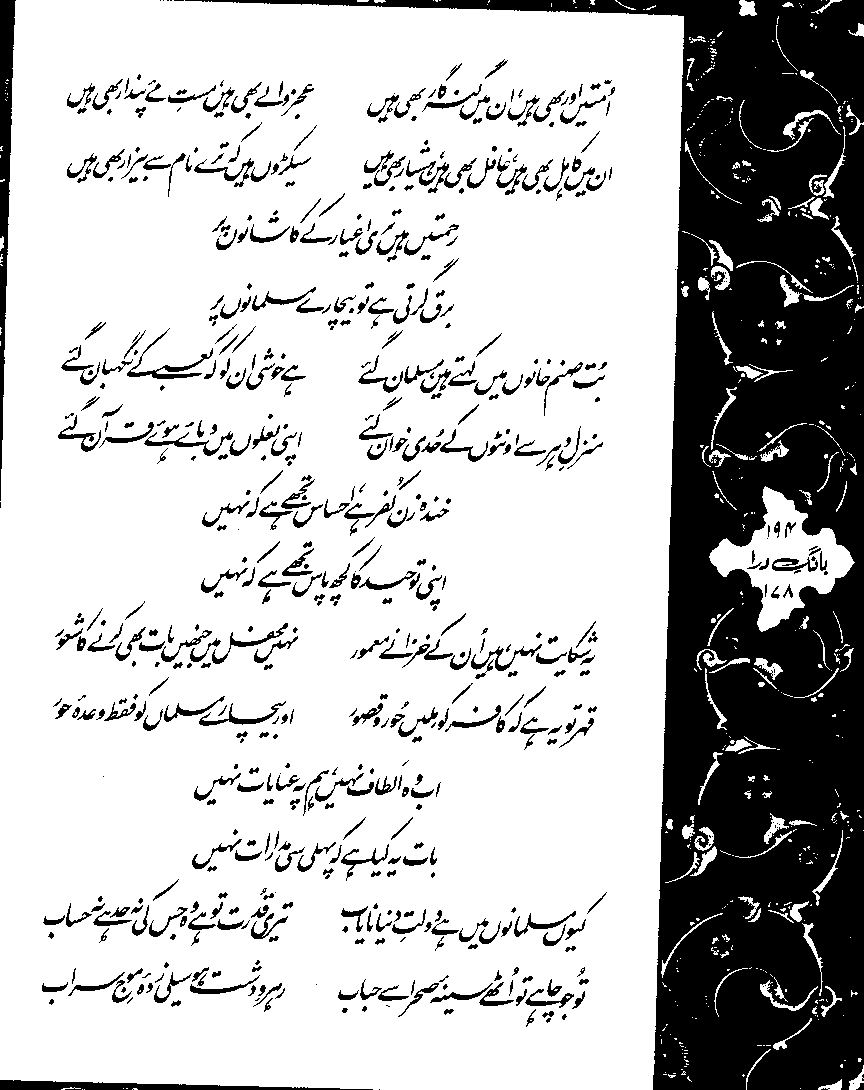 اُمتیں اور بھی ہیں، ان میں گنہ گار بھی ہیں عجز والے بھی ہیں، مستِ مۓ پندار بھی ہیں
ان میں کاہل بھی ہیں، غافل بھی ہیں، ہشیار بھی ہیں سیکڑوں ہیں کہ ترے نام سے بیزار بھی ہیں
رحمتیں ہیں تری اغیار کے کاشانوں پر
برق گرتی ہے تو بیچارے مسلمانوں پر
بُت صنم خانوں میں کہتے ہیں، مسلمان گئے ہے خوشی ان کو کہ کعبے کے نگہبان گئے
منزلِ دہر سے اونٹوں کے حُدی خوان گئے اپنی بغلوں میں دبائے ہوئے قرآن گئے
خندہ زن کُفر ہے، احساس تجھے ہے کہ نہیں
اپنی توحید کا کچھ پاس تجھے ہے کہ نہیں
یہ شکایت نہیں، ہیں اُن کے خزانے معمور نہیں محفل میں جنھیں بات بھی کرنے کا شعور
قہر تو یہ ہے کہ کافر کو ملیں حُور و قصور اور بیچارے مسلماں کو فقط وعدۂ حور
اب وہ اَلطاف نہیں، ہم پہ عنایات نہیں
بات یہ کیا ہے کہ پہلی سی مدارات نہیں
کیوں مسلمانوں میں ہے دولتِ دنیا نایاب تیری قُدرت تو ہے وہ جس کی نہ حد ہے نہ حساب
تُو جو چاہے تو اُٹھے سینۂ صحرا سے حباب رہروِ دشت ہو سیلی زدۂ موجِ سراب
۱۹۴
بانگِ درا
۱۷۸